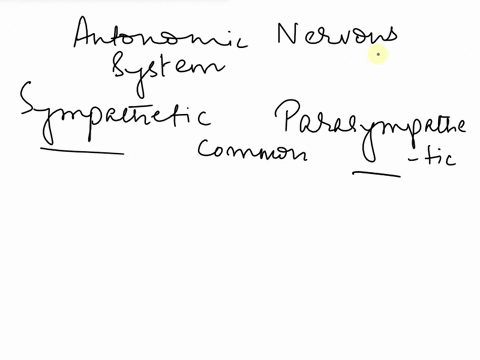 Autonomic Nervous
System
Sympathetic Parasympathe
common -tic